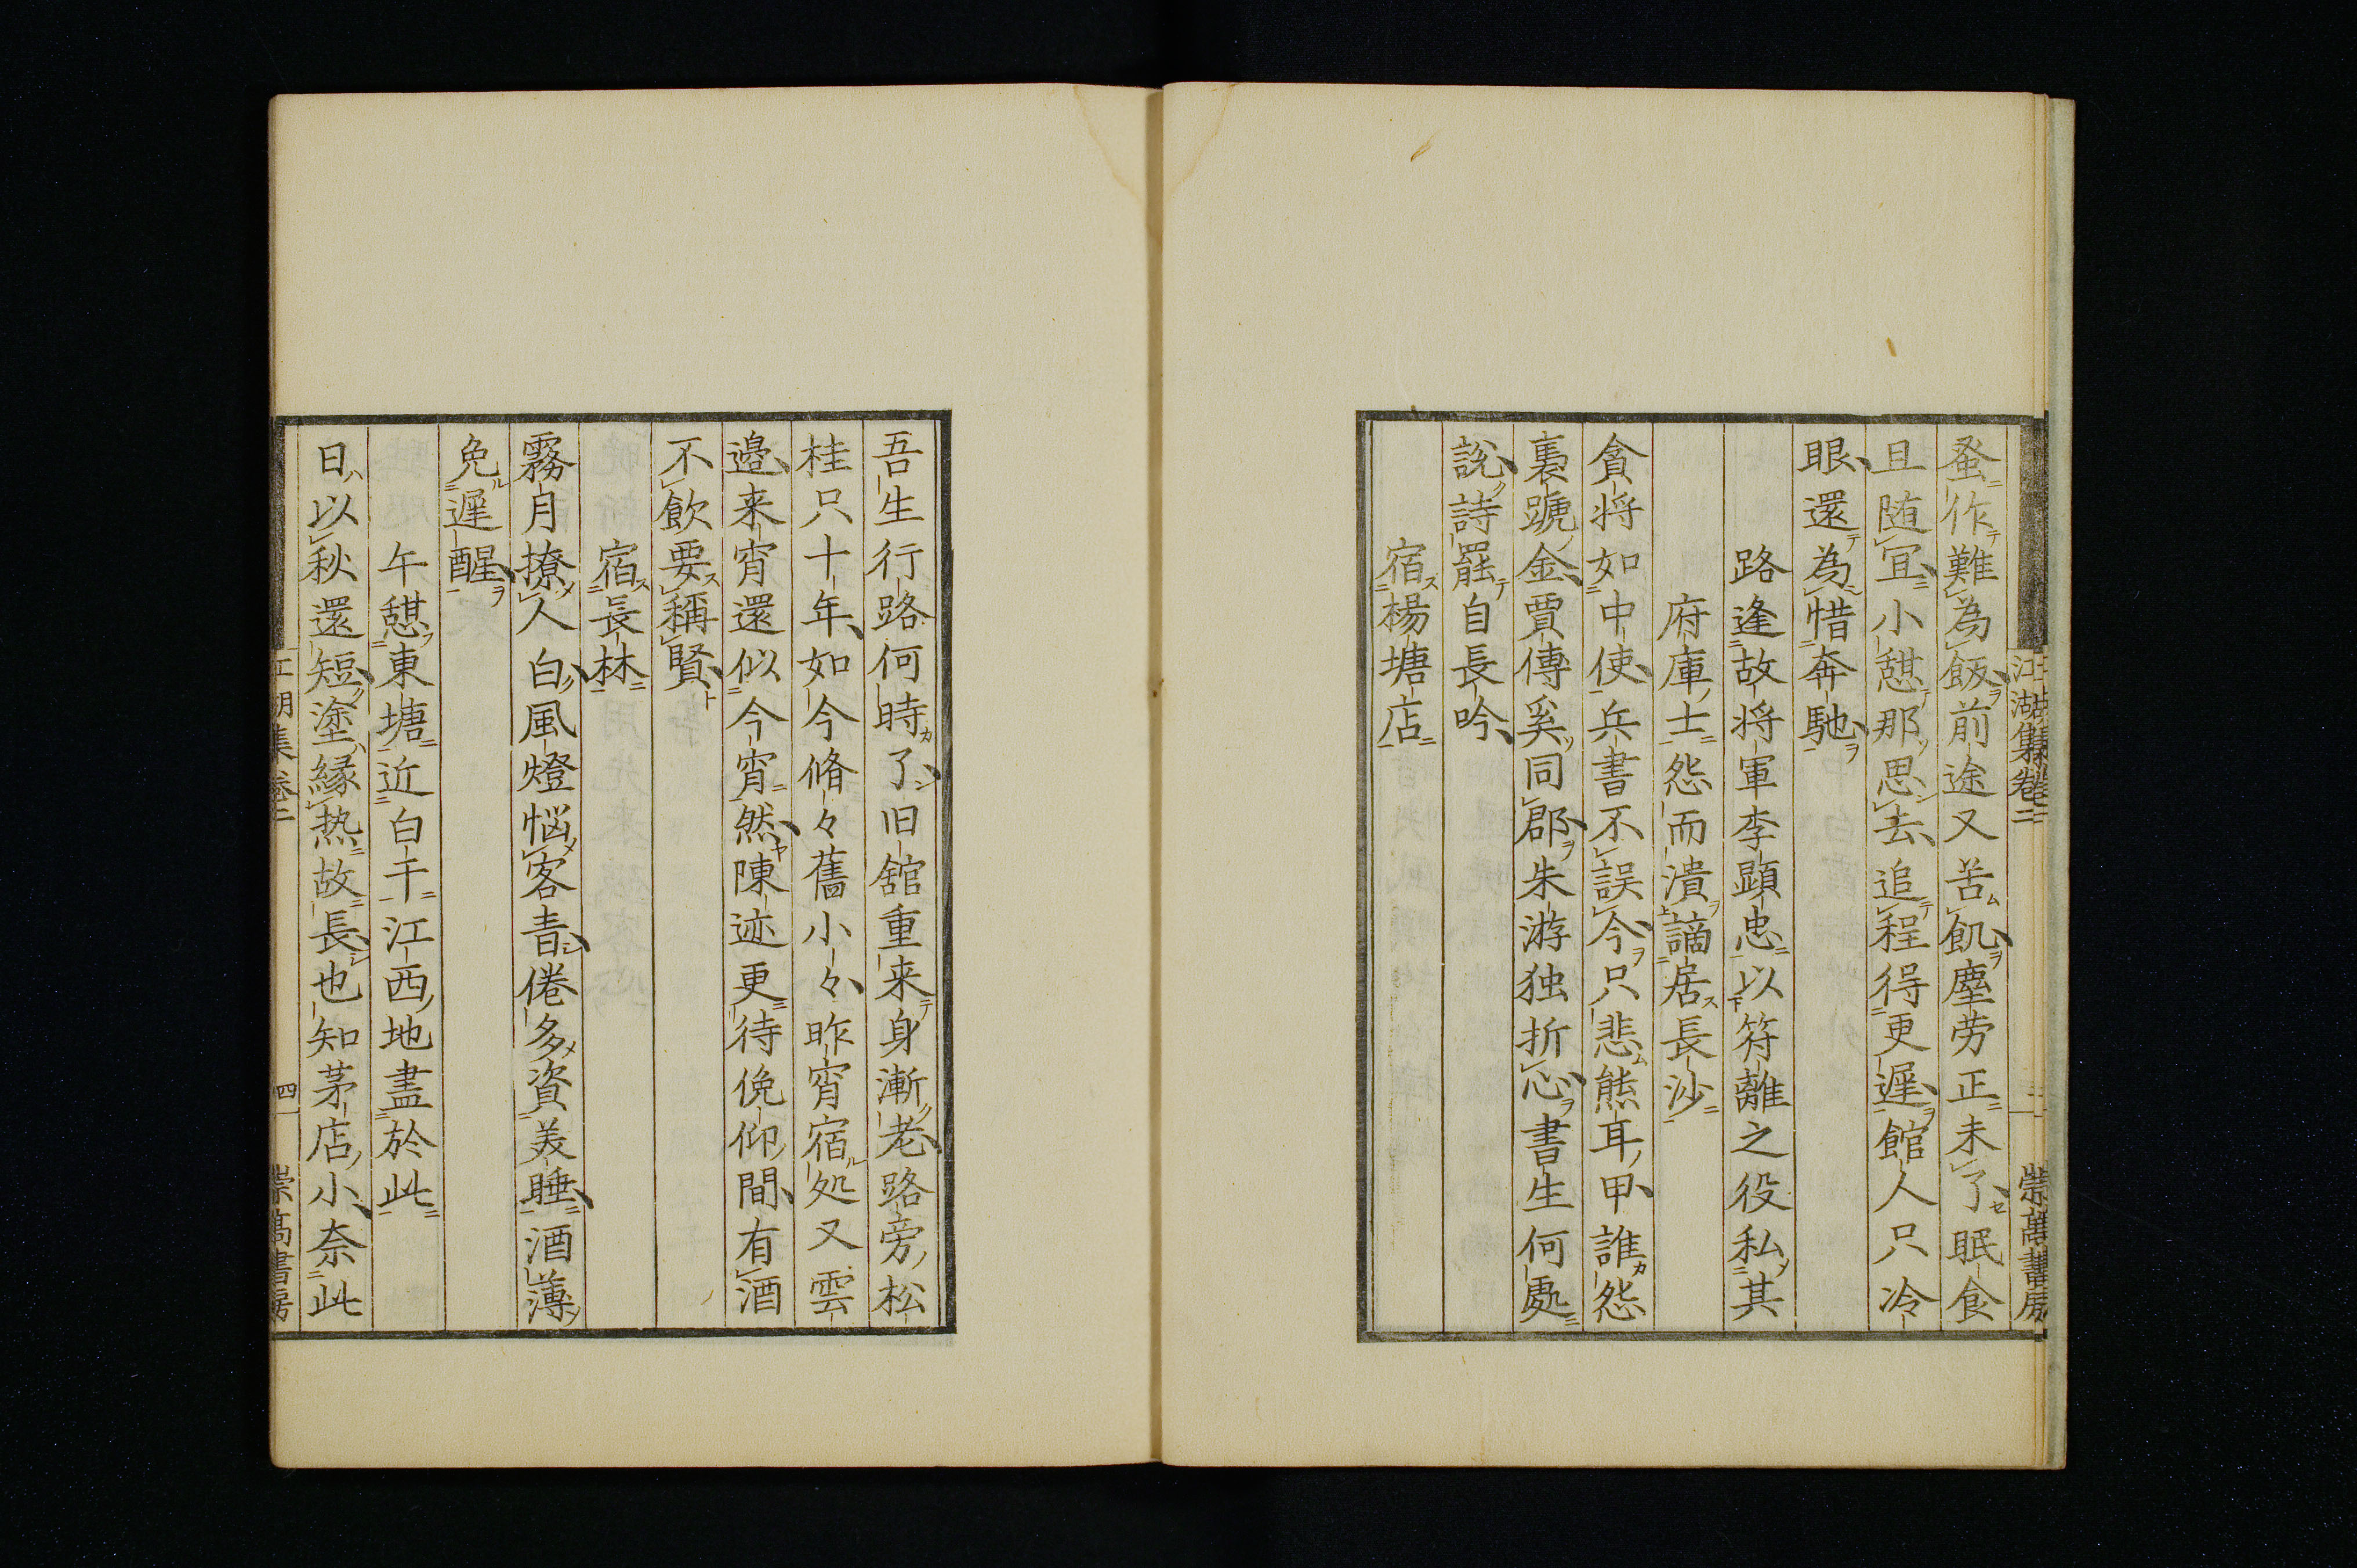 蚤作難為飯前途又苦飢塵劳正未了眠食
且随宜小憩那思去追程得更遲館人只冷
眼還為惜奔馳
路逢故将軍李顕忠以符離之役私其
府庫士怨而潰謫居長沙
貪将如中使兵書不誤今只悲熊耳甲誰怨
褭蹏金賈傳奚同郡朱游独折心書生何處
説詩罷自長吟
宿楊塘店
吾生行路何時了旧舘重来身漸老路旁松
桂只十年如今脩々舊小々昨宵宿処又雲
邉来宵還似今宵然陳迹更待俛仰間有酒
不飲要稱賢
宿長林
霧月撩人白風燈悩客青倦多資美睡酒薄
免遲醒
午憩東塘近白干江西地盡於此
日以秋還短塗縁热故長也知茅店小奈此
江湖集巻二
崇髙書房
江湖集巻二
四
崇髙書房